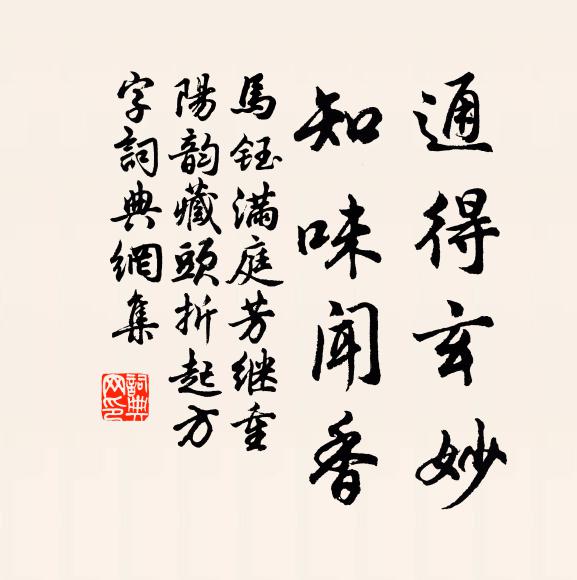 通得玄妙
知味聞香
馬鈺滿庭芳继重
陽韵藏頭折起方
字詞典網集
詞典網印